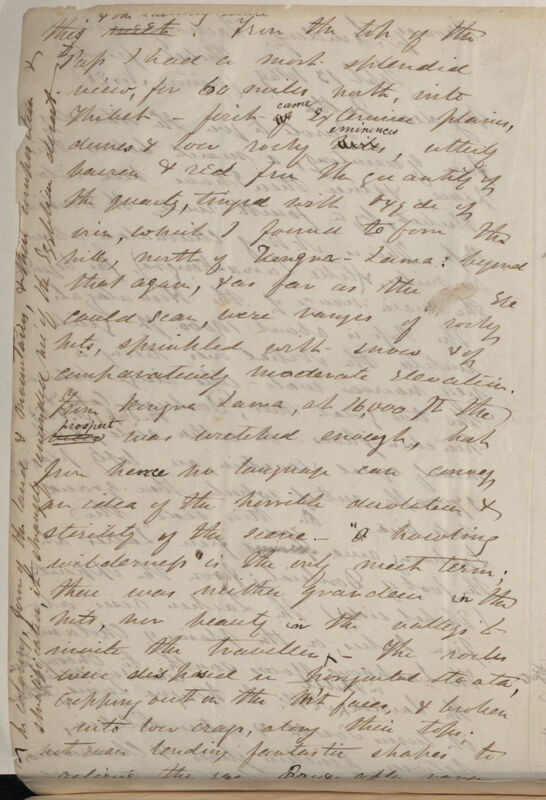 this north. From the top of the
Pass I had a most splendid
view, for 60 miles north, into
Thibet – first came of extensive plains,
dunes & low rocky hills eminences, utterly
barren & red from the quantity of
the quartz, tinged with oxyde of
iron, which I found to form the
hills, north of Kongra-Lama: beyond
that again, & as far as the eye
could scan, were ranges of rocky
hills, sprinkled with snow & of
comparatively moderate elevation.
From Kongra Lama, at 16,000 ft the
prospect was wretched enough, but
from hence no language can convey
an idea of the horrible desolation &
sterility of the scene – "a howling
wilderness" is the only meet term;
there was neither grandeur in the
hills, nor beauty in the valleys to
invite the traveller – The rocks
were disposed in horizontal strata,
cropping out on the Mt faces, & broken
into low crags, along their tops.
not even lending fantastic shapes to
relieve the
In coloring, form of the land & mountains, & their &
stratification, it strongly reminded me of the Egyptian desert